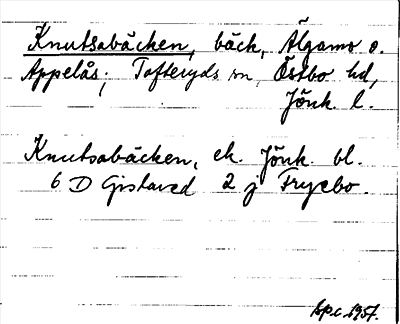 Knutsabäcken, bäck, Älgamo o.
Appelås; Tofteryds sn, Östbo hd,
Jönk. l.
Knutsabäcken, ek. Jönk. bl.
6 D Gislaved 2 j Fryebo.
Sp.c. 1957.